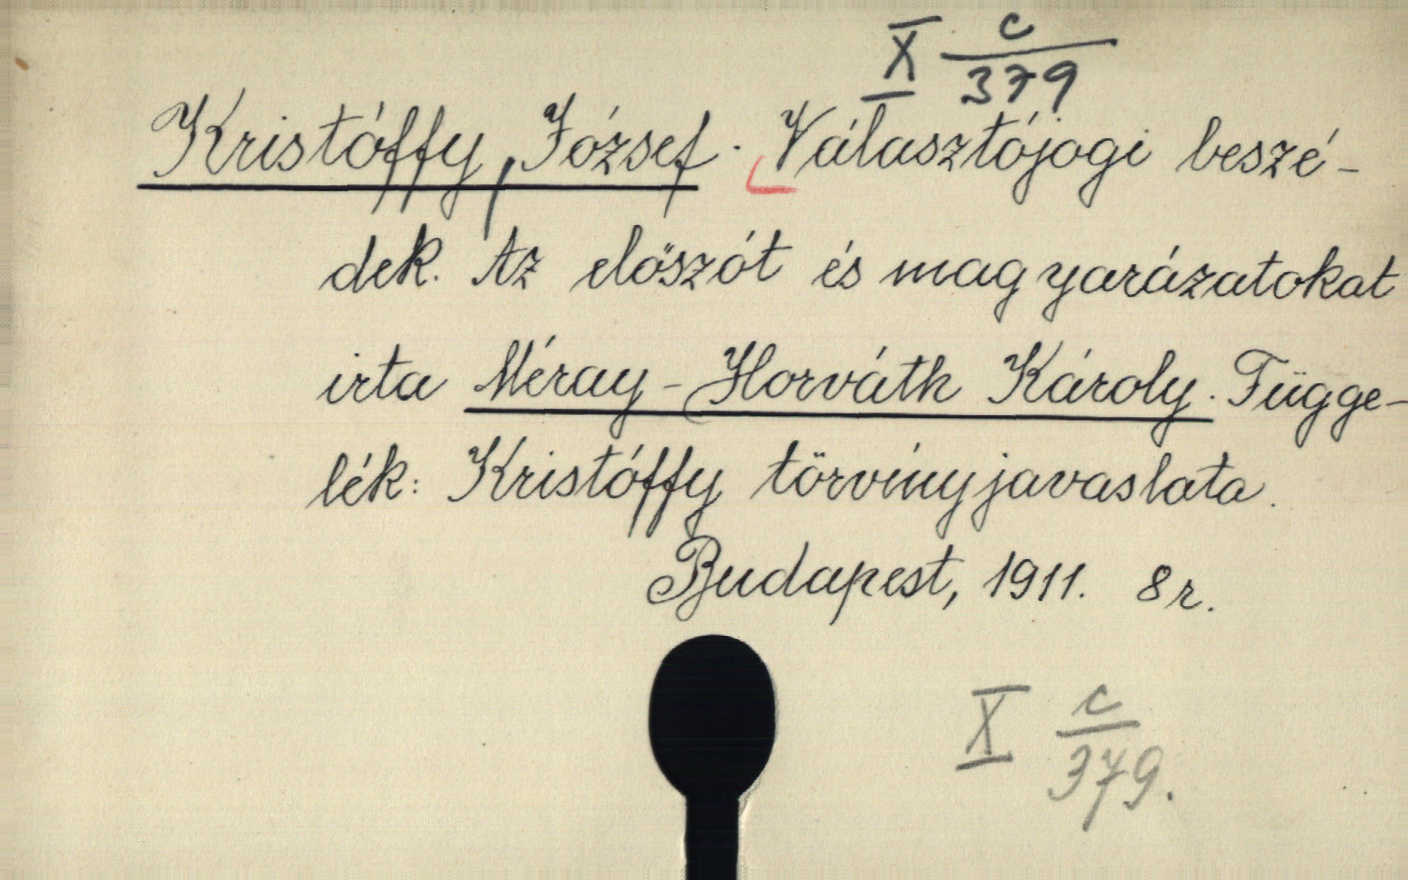 X c/379
Kristóffy, József. Választójogi beszé-
dek. Az előszót és magyarázatokat
irta Méray-Horváth Károly. Függe-
lék: Kristóffy törvényjavaslata.
Budapest, 1911. 8r.
X c/379.